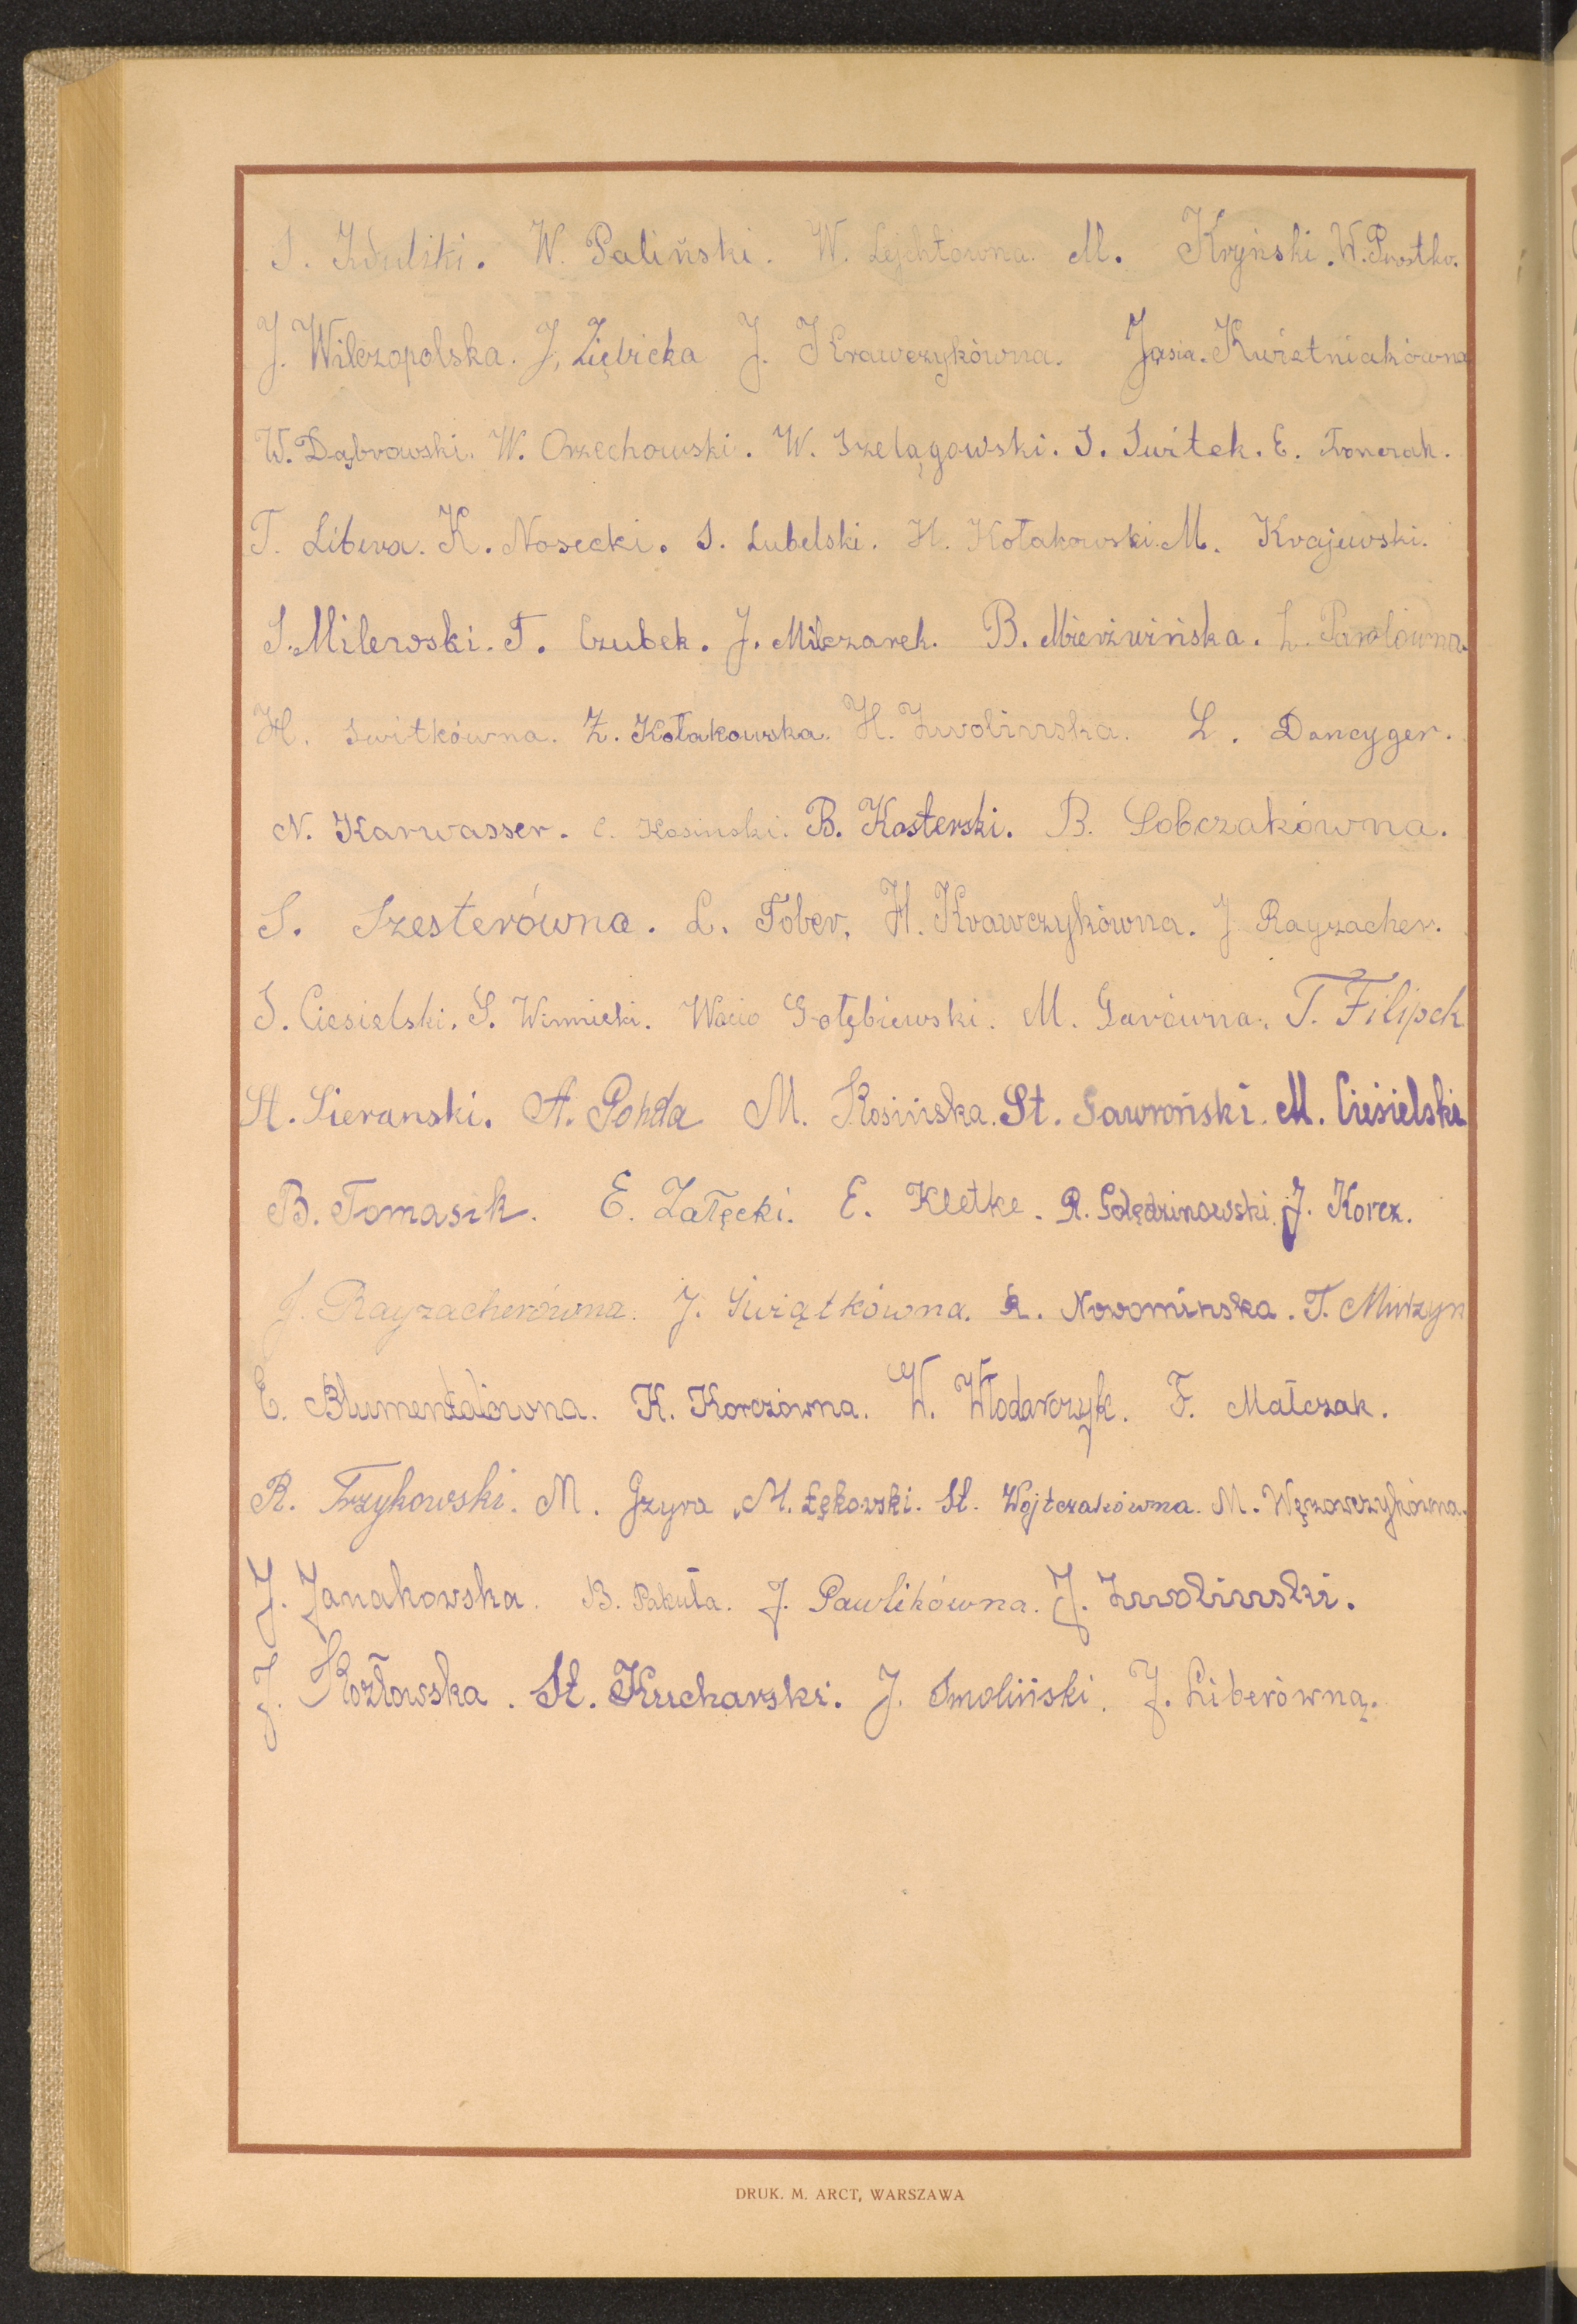 S. Zduliki. W. Paliński. W. Lejchtówna. M. Kryński. W. Prostko.
J. Wilczopolska. J. Ziębicka J. Krawczykówna. Jasia. Kwiatniakówna
W. Dąbrowski. W. Orzechowski. W. Szelągowski. S. Switek. E. Tomczak.
T. Libera. K. Nosecki. S. Lubelski. H. Kołakowski. M. Krajewski.
S. Milewski. T. Czubek. J. Milczarek. B. Mierźwińska. L. Pawłówna.
H. Switkówna. Z. Kołakowska. H. Zwolinska. L. Dancyger.
N. Karwasser. C. Kosinski. B. Kosterski. B. Sobczakówna.
S. Szesterówna. L. Tober. H. Krawczykówna. J. Rayzacher.
S. Ciesielski. S. Winnicki. Wacio Gołębiewski. M. Gavówna. T. Filipek
St. Sieranski. A. Pohda M. Kosińska. St. Gawroński. M. Ciesielski
B. Tomasik. E. Załęcki. E. Kletke. R. Golędzinowski. J. Korcz.
J. Rayzacherówna. J. Świątkówna. R. Nowominska. T. Murzyn
E. Blumentalówna. K. Korczówna. W. Włodarczyk. F. Małczak.
R. Trzykowski. M. Gzyra M. Łękowski. St. Wojtczakówna. M. Węzowczykówna.
J. Janakowska. B. Pakuła. J. Pawlikówna. J. Zwolinski.
J. Kozłowska. St. Kucharski. J. Smoliński. J. Liberówna.
DRUK. M. ARCT, WARSZAWA